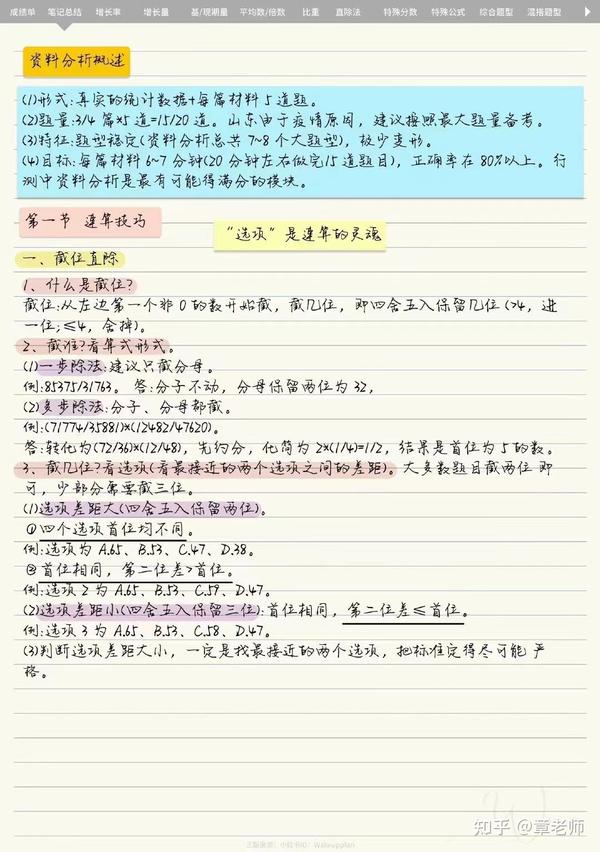 成绩单 笔记总结 增长率 增长量 基/现期量 平均数/倍数 比重 直除法 特殊分数 特殊公式 综合题型 混搭题型
资料分析概述
(1)形式:真实的统计数据+每篇材料5道题。
(2)题量:3/4篇*5道=15/20道。山东由于疫情原因，建议按照最大题量备考。
(3)特征:题型稳定(资料分析总共7~8个大题型)，极少变形。
(4)目标:每篇材料6~7分钟(20分钟左右做完15道题目)，正确率在80%以上。行
测中资料分析是最有可能得满分的模块。
第一节 速算技巧
“选项”是速算的灵魂
一、截位直除
1、什么是截位?
截位:从左边第一个非0的数开始截，截几位，即四舍五入保留几位(>4，进
一位;≤4，舍掉)。
2、截谁?看算式形式。
(1)一步除法:建议只截分母。
例:85375/31763。答:分子不动，分母保留两位为32，
(2)多步除法:分子、分母都截。
例:(71774/35881)*(12482/47620)。
答:转化为(72/36)*(12/48)，先约分，化简为2*(1/4)=1/2，结果是首位为5的数。
3、截几位?看选项(看最接近的两个选项之间的差距)。大多数题目截两位即
可，少部分需要截三位。
(1)选项差距大(四舍五入保留两位)。
①四个选项首位均不同。
例:选项为A.65、B.53、C.47、D.38。
②首位相同，第二位差>首位。
例:选项2为A.65、B.53、C.59、D.47。
(2)选项差距小(四舍五入保留三位):首位相同，第二位差≤首位。
例:选项3为A.65、B.53、C.58、D.47。
(3)判断选项差距大小，一定是找最接近的两个选项，把标准定得尽可能严
格。
知乎 @章老师